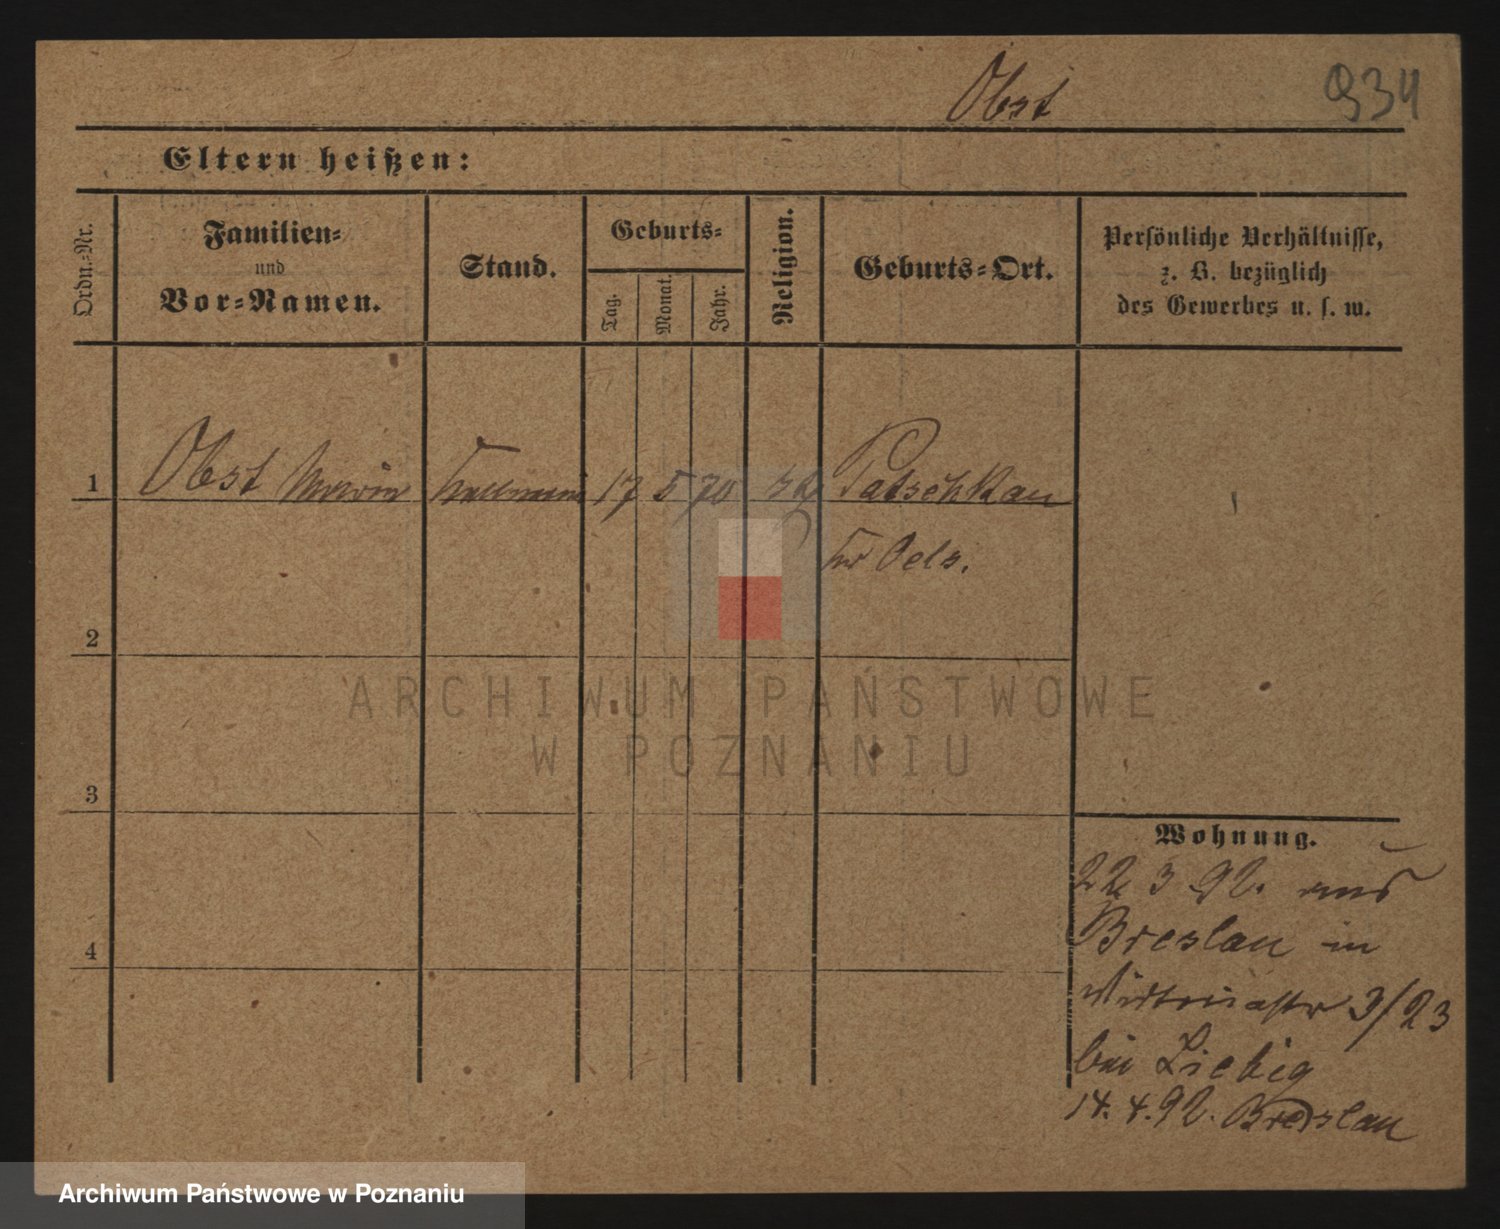 Obst 934
Eltern heißen:
Ordn.-Nr.
Familien-
und
Vor-Namen.
Stand.
Geburts-
Tag.
Monat.
Jahr.
Religion.
Geburts-Ort.
Persönliche Verhältnisse,
z. B. bezüglich
des Gewerbes u. s. w.
1 Obst 17 5 70 Patschkau
Oels.
2
3
4
Wohnung.
22 3 92. aus
Breslau in
Viktoriastr 3/23
bei Liebig
14. 4. 92. Breslau
ARCHIWUM PAŃSTWOWE
W POZNANIU
Archiwum Państwowe w Poznaniu